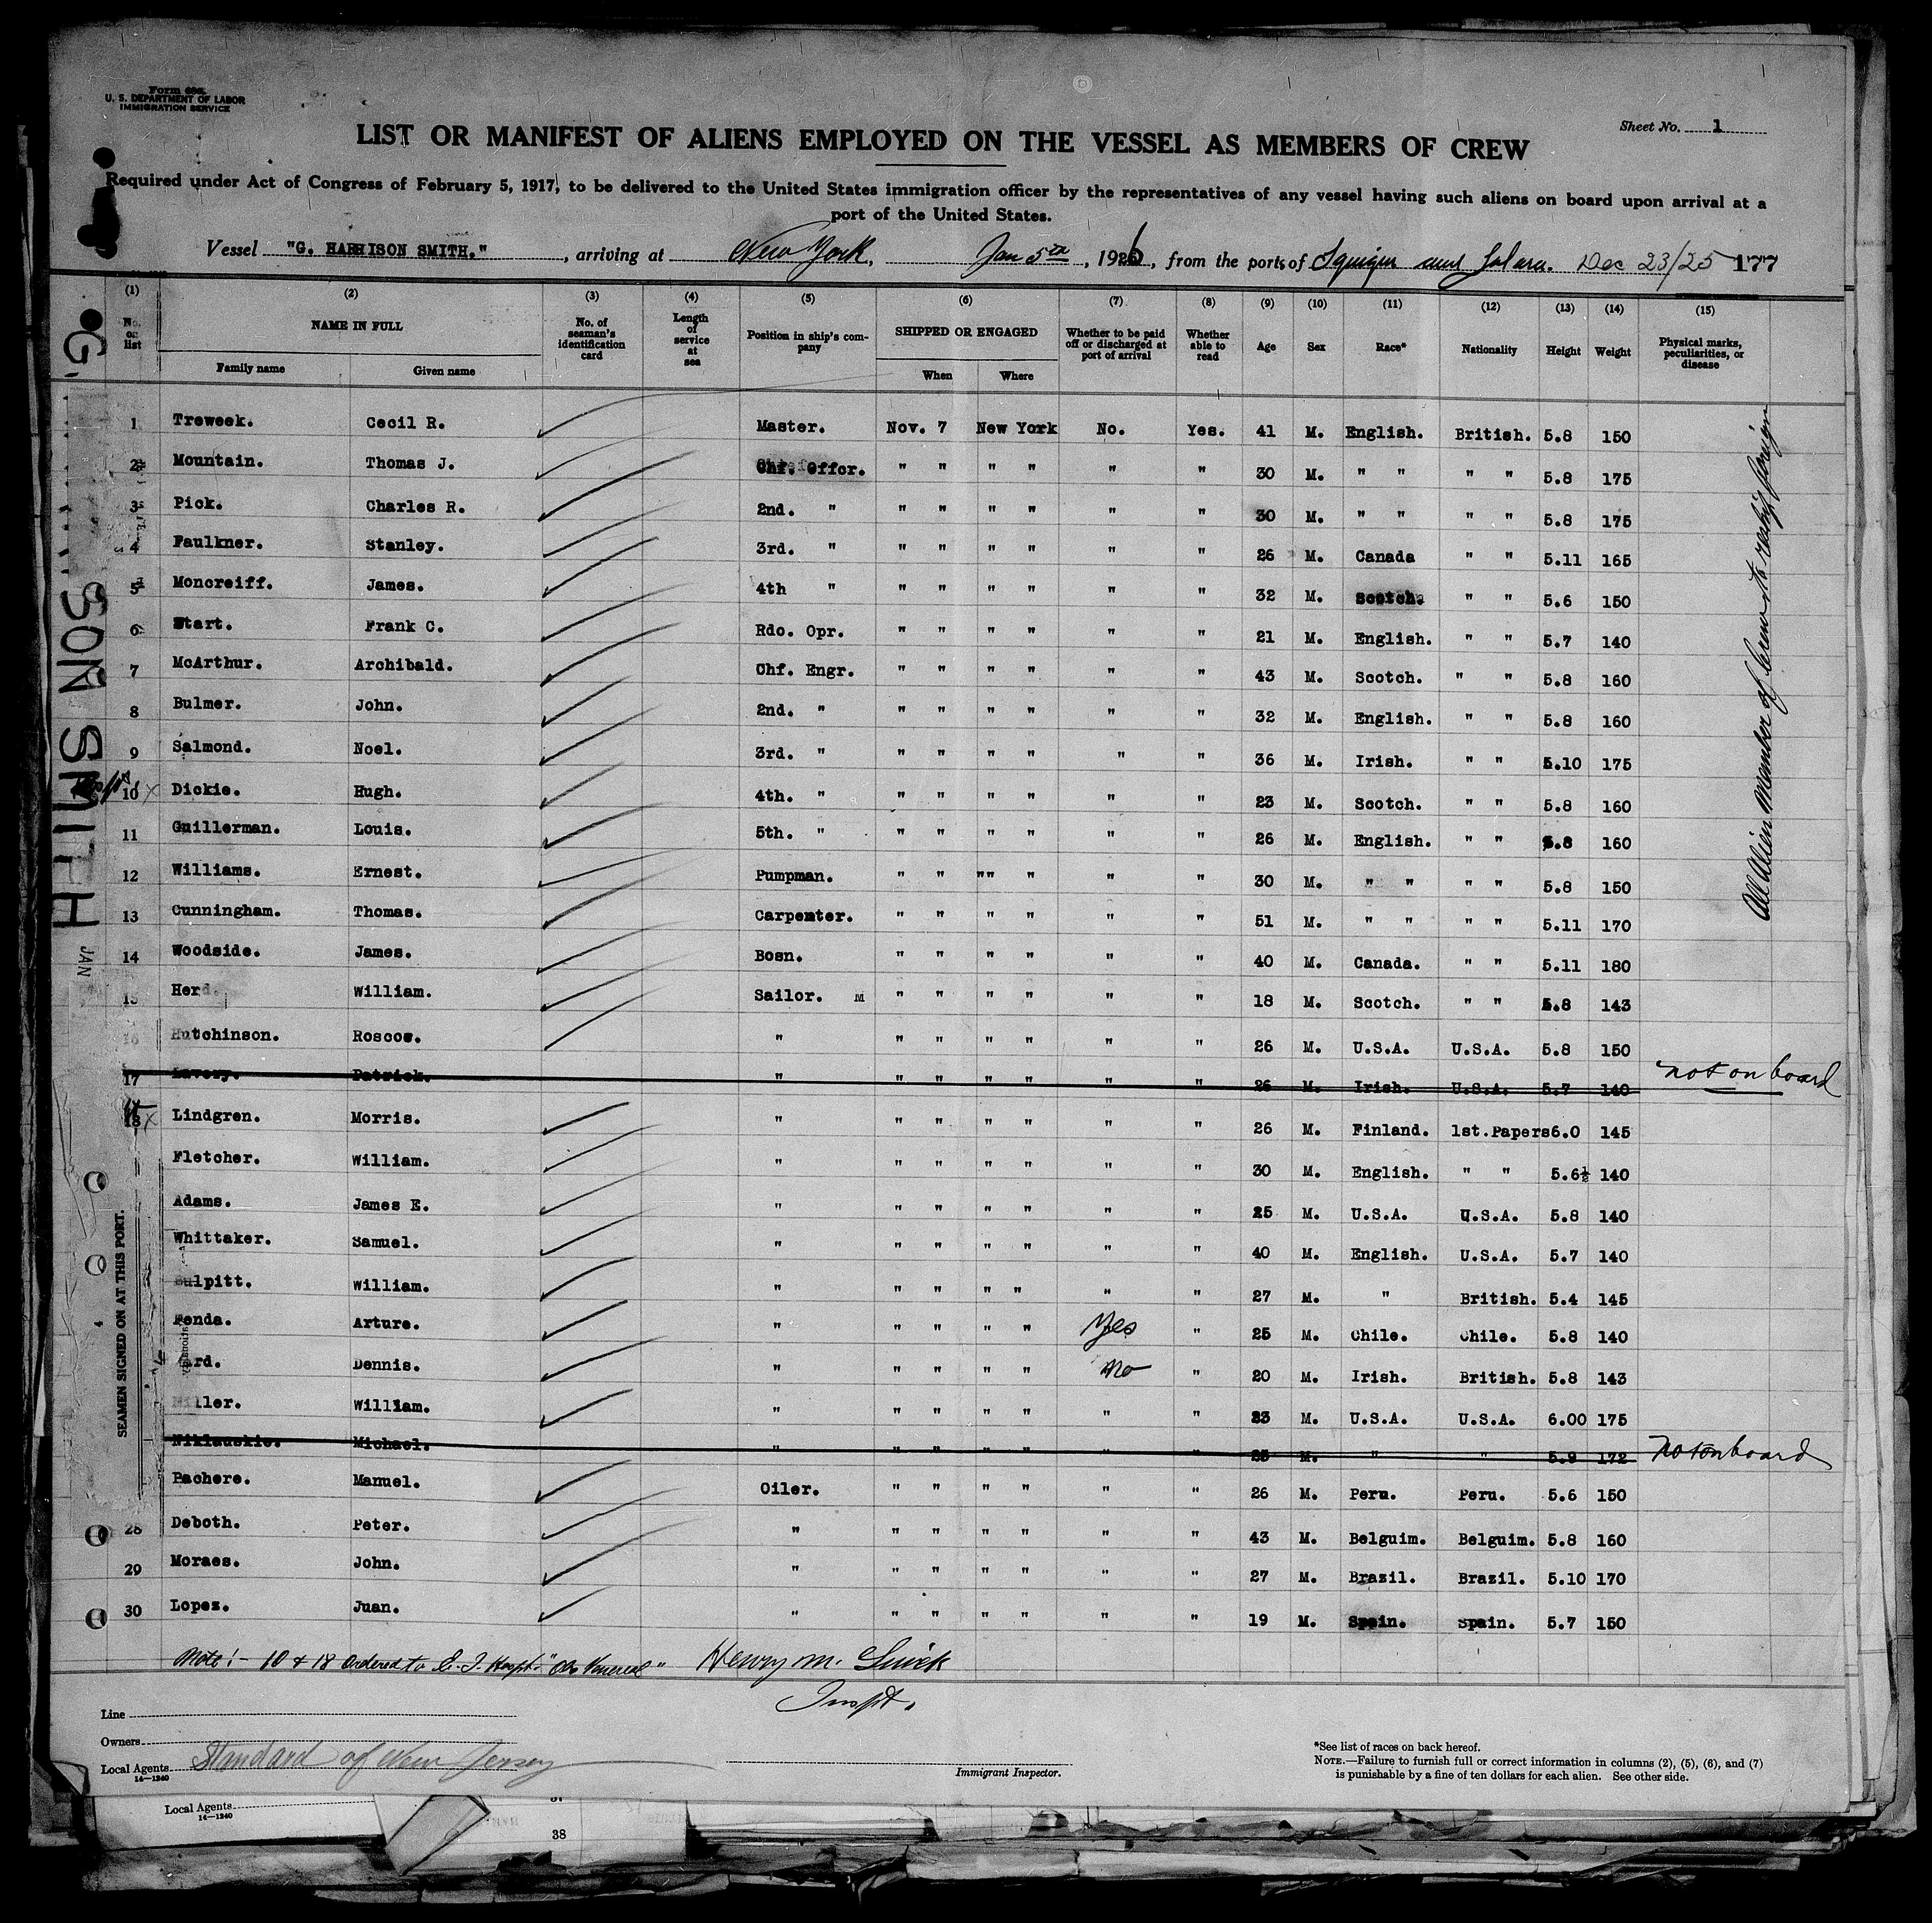 Form 680,
U. S. DEPARTMENT OF LABOR
IMMIGRATION SERVICE
Sheet No. 1
LIST OR MANIFEST OF ALIENS EMPLOYED ON THE VESSEL AS MEMBERS OF CREW
Required under Act of Congress of February 5, 1917, to be delivered to the United States immigration officer by the representatives of any vessel having such aliens on board upon arrival at a
port of the United States.
Vessel "G. HARRISON SMITH." , arriving at New York, Jan 5th , 1926 , from the ports of and Dec 23/25 177
(1) (2) (3) (4) (5) (6) (7) (8) (9) (10) (11) (12) (13) (14) (15)
No. on list NAME IN FULL No. of seaman's identification card Length of service at sea Position in ship's company SHIPPED OR ENGAGED Whether to be paid off or discharged at port of arrival Whether able to read Age Sex Race* Nationality Height Weight Physical marks, peculiarities, or disease
Family name Given name When Where
1 Treweek. Cecil R. Master. Nov. 7 New York No. Yes. 41 M. English. British. 5.8 150
2 Mountain. Thomas J. Chf. Offcr. " " " " " " 30 M. " " " " 5.8 175
3 Pick. Charles R. 2nd. " " " " " " " 30 M. " " " " 5.8 175
4 Faulkner. Stanley. 3rd. " " " " " " " 26 M. Canada " " 5.11 165
5 Moncreiff. James. 4th " " " " " " " 32 M. Scotch. " " 5.6 150
6 Start. Frank C. Rdo. Opr. " " " " " " 21 M. English. " " 5.7 140
7 McArthur. Archibald. Chf. Engr. " " " " " " 43 M. Scotch. " " 5.8 160
8 Bulmer. John. 2nd. " " " " " " " 32 M. English. " " 5.8 160
9 Salmond. Noel. 3rd. " " " " " " " 36 M. Irish. " " 5.10 175
10 x Dickie. Hugh. 4th. " " " " " " " 23 M. Scotch. " " 5.8 160
11 Guillerman. Louis. 5th. " " " " " " " 26 M. English. " " 5.8 160
12 Williams. Ernest. Pumpman. " " "" " " " 30 M. " " " " 5.8 150
13 Cunningham. Thomas. Carpenter. " " " " " " 51 M. " " " " 5.11 170
14 Woodside. James. Bosn. " " " " " " 40 M. Canada. " " 5.11 180
15 Herd. William. Sailor. M " " " " " " 18 M. Scotch. " " 5.8 143
16 Hutchinson. Roscoe. " " " " " " " 26 M. U.S.A. U.S.A. 5.8 150
17 Lavery. Patrick. " " " " " " " 26 M. Irish. U.S.A. 5.7 140 not on board
18 x Lindgren. Morris. " " " " " " " 26 M. Finland. 1st.Papers 6.0 145
Fletcher. William. " " " " " " " 30 M. English. " " 5.6½ 140
Adams. James E. " " " " " " " 25 M. U.S.A. U.S.A. 5.8 140
Whittaker. Samuel. " " " " " " " 40 M. English. U.S.A. 5.7 140
Culpitt. William. " " " " " " " 27 M. " British. 5.4 145
Fenda. Arture. " " " " " Yes " 25 M. Chile. Chile. 5.8 140
Dennis. " " " " " No " 20 M. Irish. British. 5.8 143
Miller. William. " " " " " " " 23 M. U.S.A. U.S.A. 6.00 175
Niklauskie. Michael. " " " " " " " 25 M. " " 5.9 172 not on board
Pachere. Manuel. Oiler. " " " " " " 26 M. Peru. Peru. 5.6 150
28 Deboth. Peter. " " " " " " " 43 M. Belguim. Belguim. 5.8 160
29 Moraes. John. " " " " " " " 27 M. Brazil. Brazil. 5.10 170
30 Lopez. Juan. " " " " " " " 19 M. Spain. Spain. 5.7 150
All Alien Member of Crew to reship foreign
Note! - 10 & 18 ordered to E. I. Hospt. "Venereal" Henry M.
Inspt.
Line
Owners
Local Agents Standard of New Jersey
14—1240
Immigrant Inspector.
*See list of races on back hereof.
NOTE.—Failure to furnish full or correct information in columns (2), (5), (6), and (7)
is punishable by a fine of ten dollars for each alien. See other side.
G.
SON SMITH
JAN
SEAMEN SIGNED ON AT THIS PORT.
Local Agents
14—1240
38